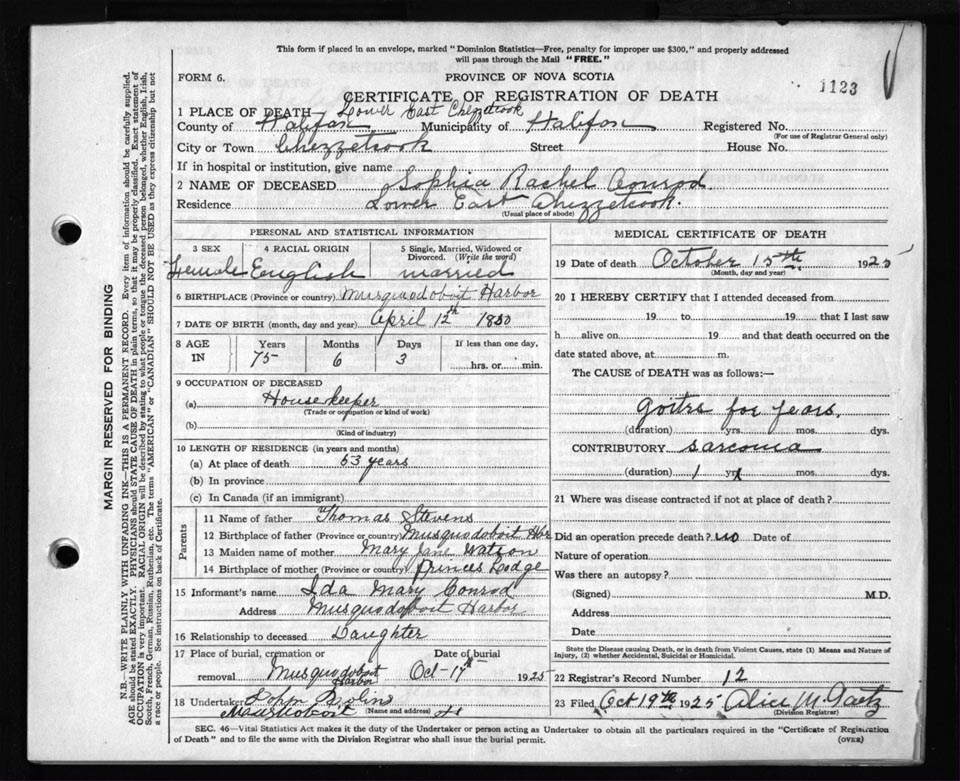 This form if placed in an envelope, marked "Dominion Statistics—Free, penalty for improper use $300," and properly addressed
will pass through the Mail "FREE."
FORM 6.
PROVINCE OF NOVA SCOTIA
1123
CERTIFICATE OF REGISTRATION OF DEATH
1 PLACE OF DEATH— Lower East Chezzetcook
County of Halifax Municipality of Halifax Registered No.
(For use of Registrar General only)
City or Town Chezzetcook Street House No.
If in hospital or institution, give name
2 NAME OF DECEASED Sophia Rachel Conrod
Residence Lower East Chezzetcook.
(Usual place of abode)
PERSONAL AND STATISTICAL INFORMATION
3 SEX 4 RACIAL ORIGIN 5 Single, Married, Widowed or
Divorced. (Write the word)
Female English married
6 BIRTHPLACE (Province or country) Musquodoboit Harbor
7 DATE OF BIRTH (month, day and year) April 12th 1850
8 AGE Years Months Days If less than one day,
IN 75 6 3 hrs. or min.
9 OCCUPATION OF DECEASED
(a) House keeper
(Trade or occupation or kind of work)
(b)
(Kind of industry)
10 LENGTH OF RESIDENCE (in years and months)
(a) At place of death 53 years
(b) In province
(c) In Canada (if an immigrant)
Parents
11 Name of father Thomas Stevens
12 Birthplace of father (Province or country) Musquodoboit Hbr
13 Maiden name of mother Mary Jane Watson
14 Birthplace of mother (Province or country) Princes Lodge
15 Informant's name Ida Mary Conrod
Address Musquodoboit Harbor
16 Relationship to deceased Daughter
17 Place of burial, cremation or Date of burial
removal Musquodoboit Harbor Oct-17th 1925
18 Undertaker John
(Name and address)
MEDICAL CERTIFICATE OF DEATH
19 Date of death October 15th 1925
(Month, day and year)
20 I HEREBY CERTIFY that I attended deceased from
19 to 19 that I last saw
h alive on 19 and that death occurred on the
date stated above, at m.
The CAUSE of DEATH was as follows:—
goitre for years.
(duration) yrs. mos. dys.
CONTRIBUTORY sarcoma
(duration) 1 yrs. mos. dys.
21 Where was disease contracted if not at place of death?
Did an operation precede death? no Date of
Nature of operation
Was there an autopsy?
(Signed) M.D.
Address
Date
State the Disease causing Death, or in death from Violent Causes, state (1) Means and Nature of
Injury, (2) whether Accidental, Suicidal or Homicidal.
22 Registrar's Record Number 12
23 Filed Oct 19th 1925 Alice M. Gaetz
(Division Registrar)
SEC. 46—Vital Statistics Act makes it the duty of the Undertaker or person acting as Undertaker to obtain all the particulars required in the "Certificate of Registration
of Death" and to file the same with the Division Registrar who shall issue the burial permit.
(OVER)
MARGIN RESERVED FOR BINDING
N.B.—WRITE PLAINLY WITH UNFADING INK—THIS IS A PERMANENT RECORD. Every item of information should be carefully supplied.
AGE should be stated EXACTLY. PHYSICIANS should STATE CAUSE OF DEATH in plain terms, so that it may be properly classified. Exact statement of
OCCUPATION is very important. RACIAL ORIGIN will be described by stating to what people or tongue the deceased person belonged, whether English, Irish,
Scotch, French, German, Russian, Ruthenian, etc. The terms "AMERICAN" or "CANADIAN" SHOULD NOT BE USED as they express citizenship but not
a race or people. See instructions on back of Certificate.